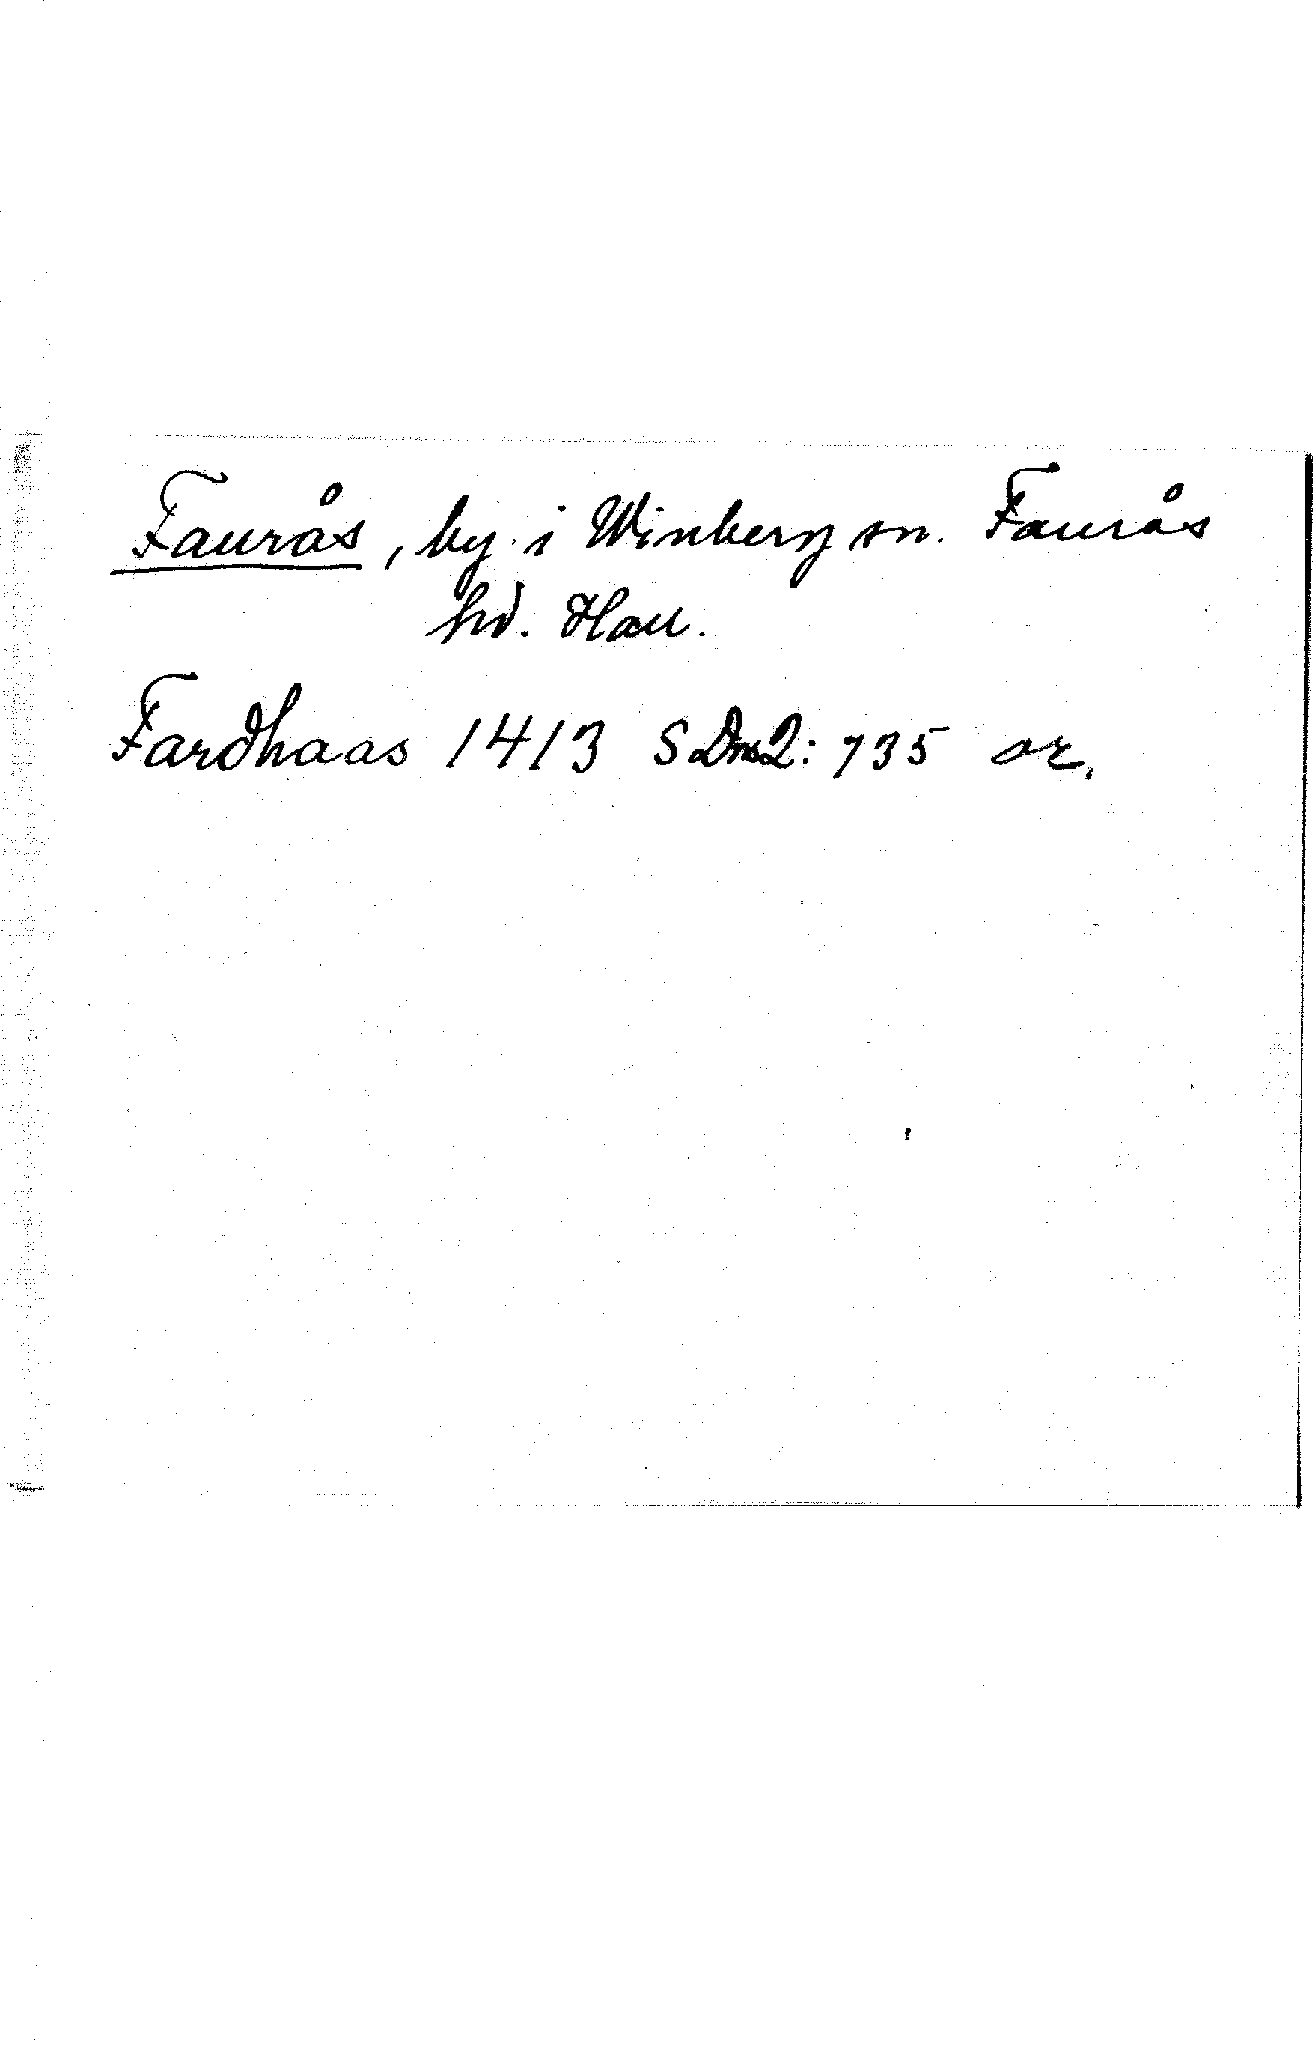 Faurås, by i Winberg sn. Faurås
hd. Hall.
Fardhaas 1413 SDns2: 735 or.